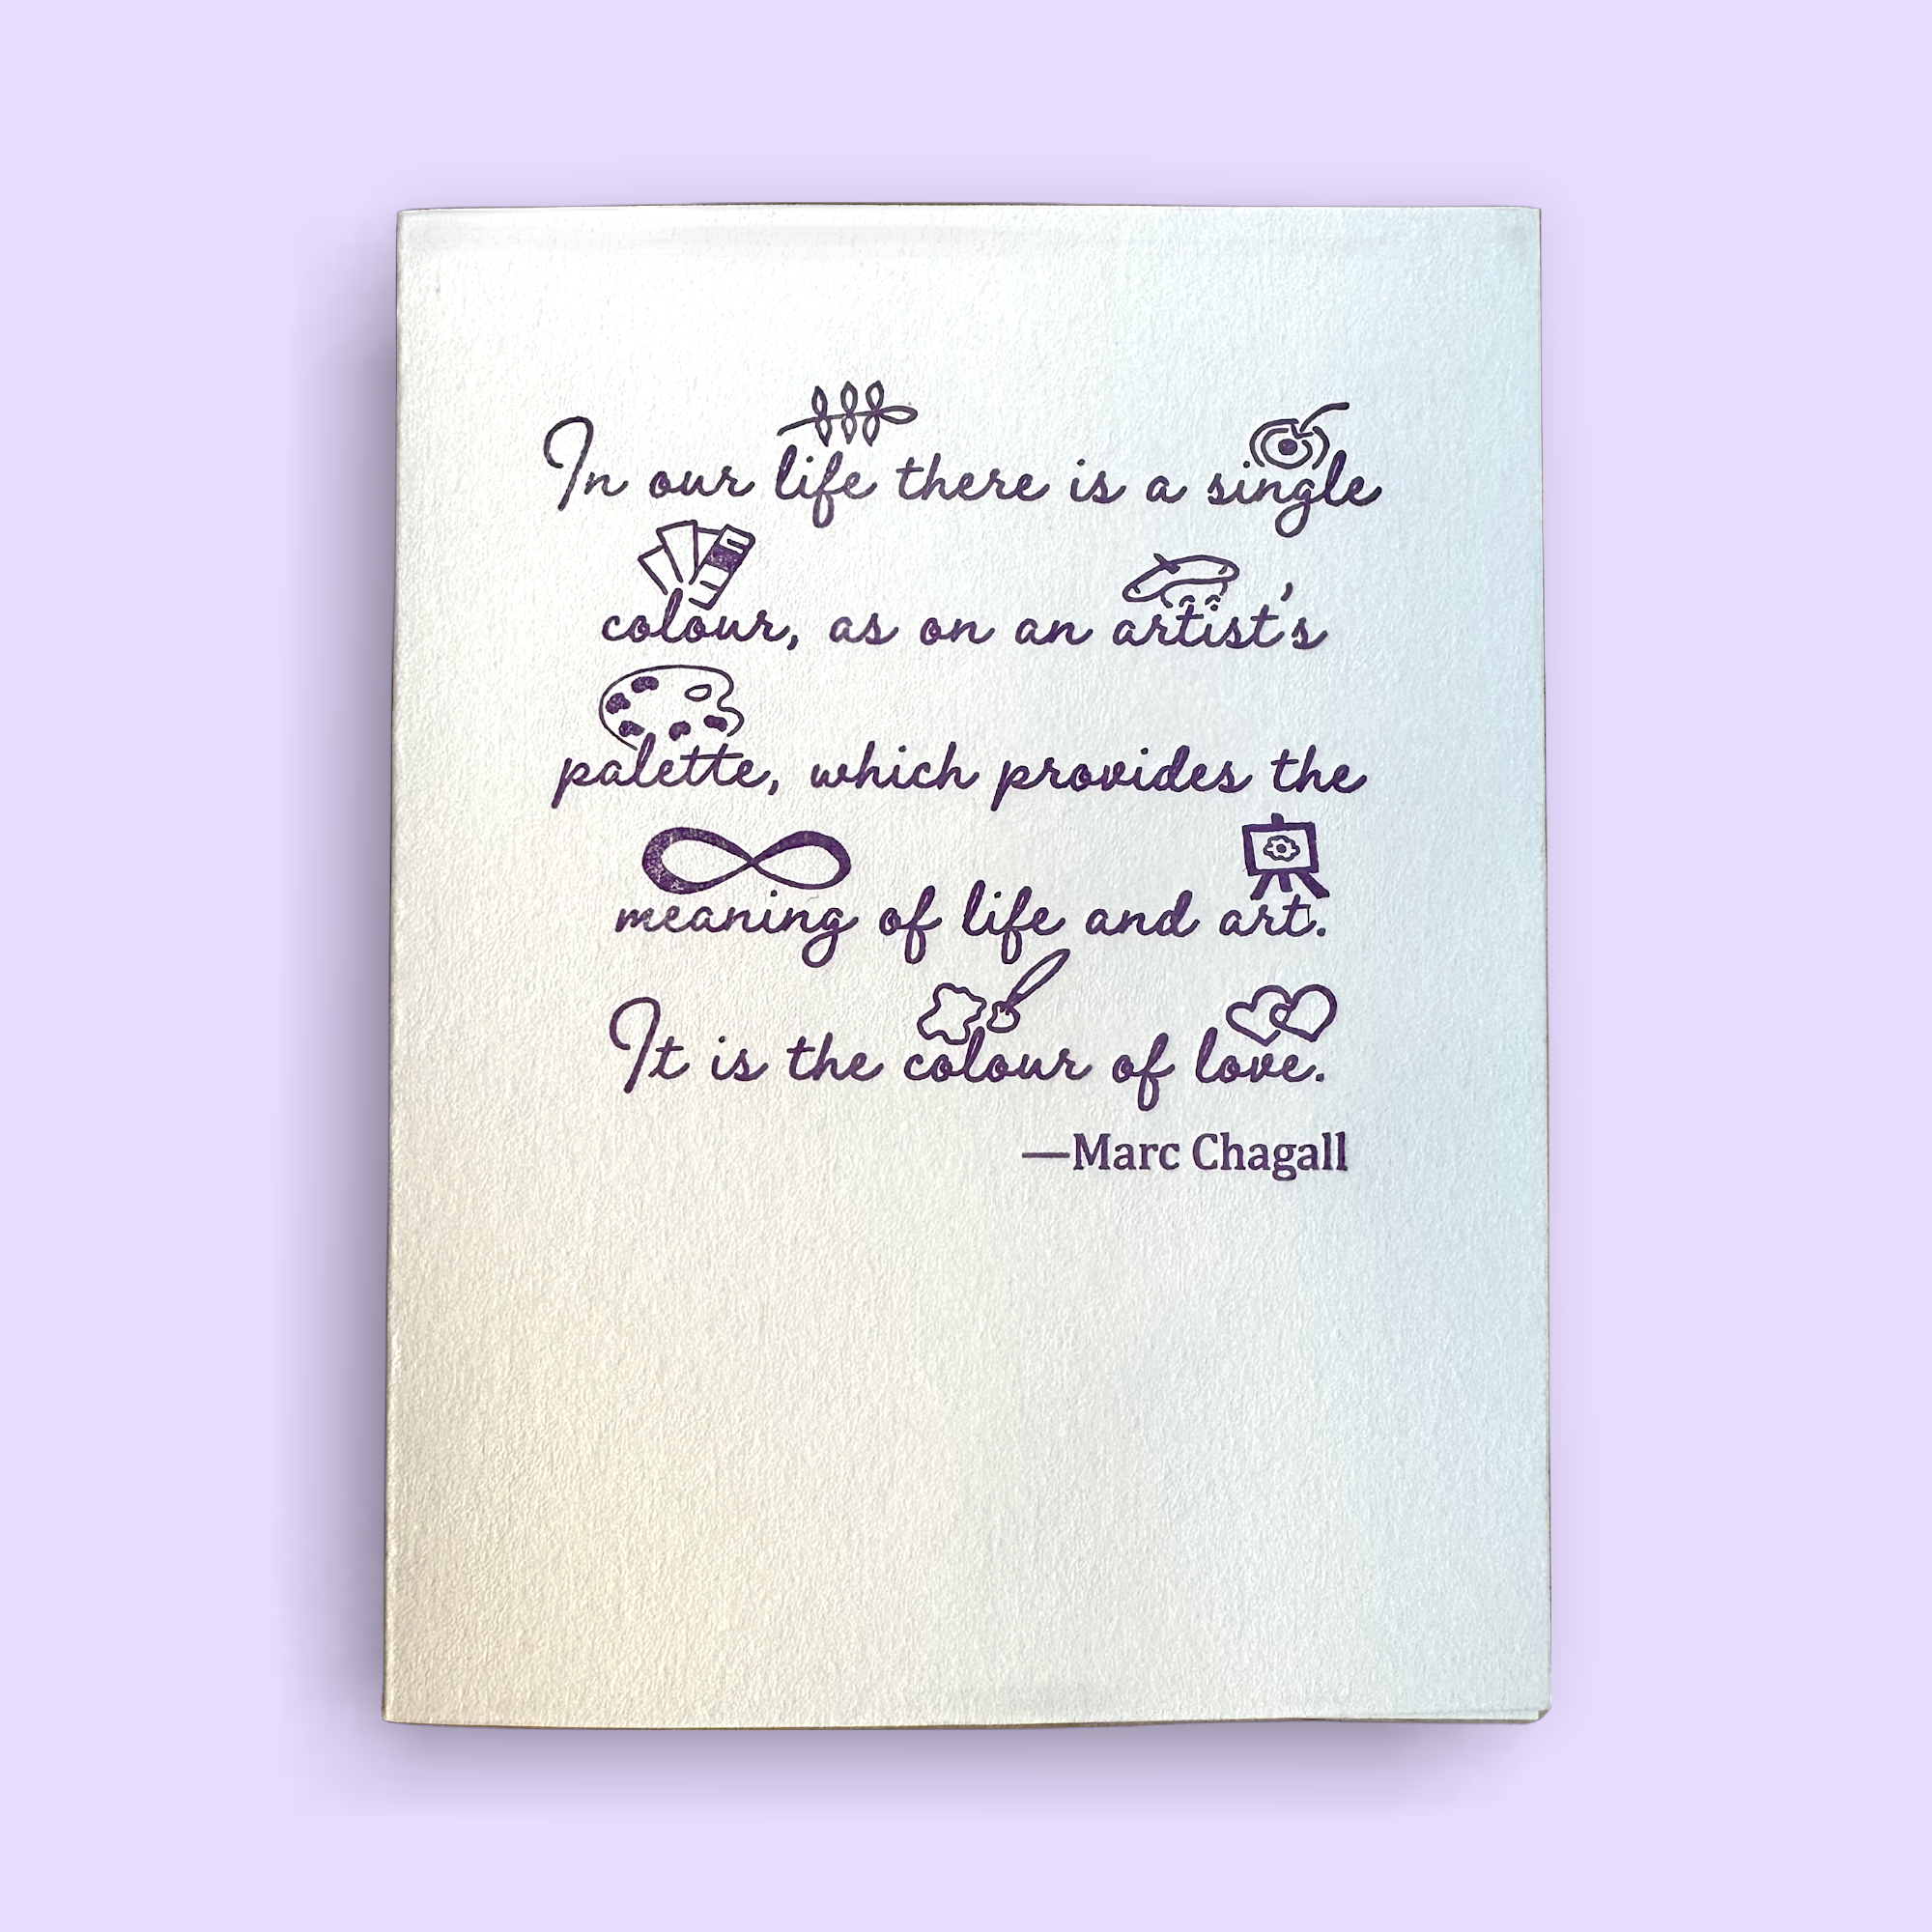 In our life there is a single
colour, as on an artist's
palette, which provides the
meaning of life and art.
It is the colour of love.
—Marc Chagall